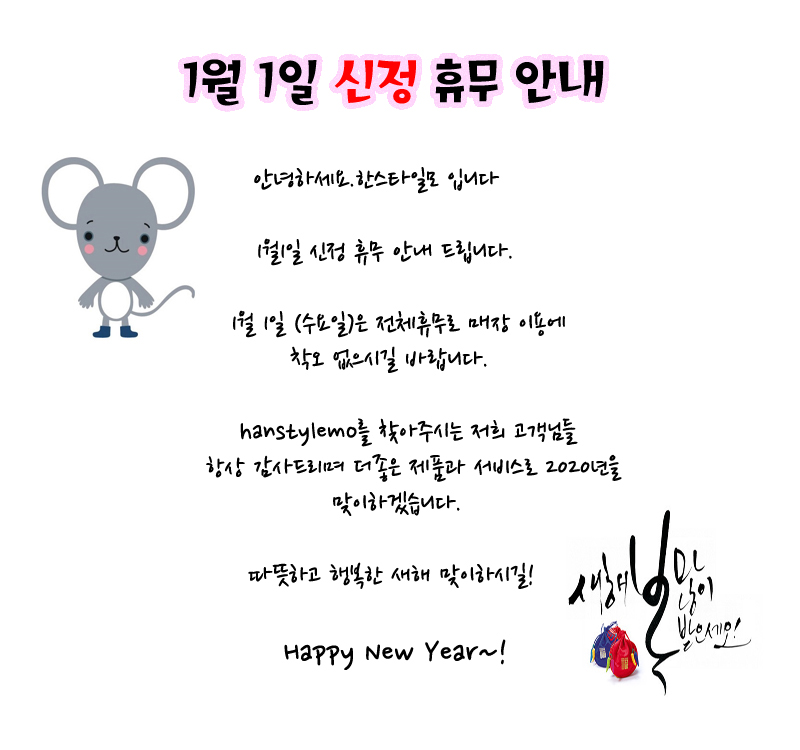 1월 1일 신정 휴무 안내
안녕하세요.한스타일모 입니다
1월1일 신정 휴무 안내 드립니다.
1월 1일 (수요일)은 전체휴무로 매장 이용에
착오 없으시길 바랍니다.
hanstylemo를 찾아주시는 저희 고객님들
항상 감사드리며 더좋은 제품과 서비스로 2020년을
맞이하겠습니다.
따뜻하고 행복한 새해 맞이하시길!
새해 복 많이 받으세요!
Happy New Year~!